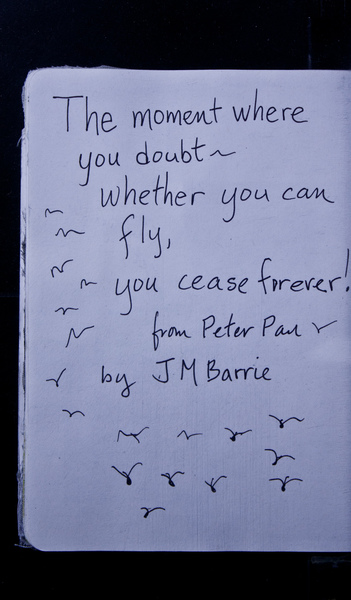 The moment where
you doubt~
whether you can
fly,
you cease forever!
from Peter Pan
by J M Barrie